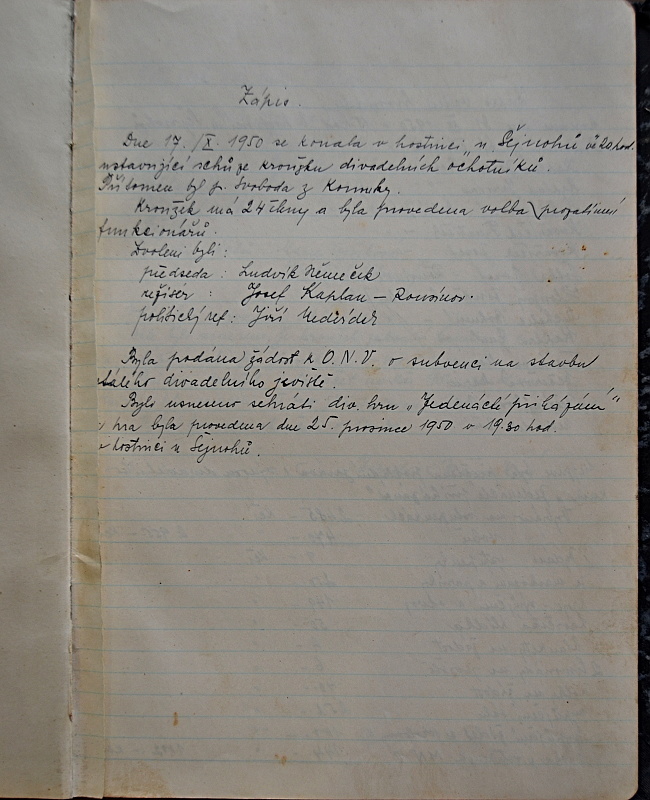 Zápis.
Dne 17./X. 1950 se konala v hostinci „u Šejnohů
ustavující schůze kroužku divadelních ochotníků.
Přítomen byl p. Svoboda z
Kroužek má 24 členy a byla provedena volba prozatímní
funkcionářů.
Zvoleni byli:
předseda : Ludvík Němeček
režisér : Josef Kaplan – Rousínov.
politický ref: Jiří
Byla podána žádost k O.N.V. o subvenci na stavbu
stálého divadelního jeviště.
Bylo usneseno sehráti div. hru „Jedenácté přikázání“
hra byla provedena dne 25. prosince 1950 v 19.30 hod.
v hostinci u Šejnohů.